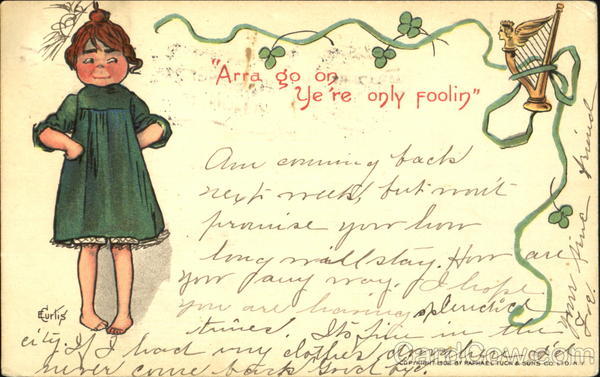 "Arra go on
Ye're only foolin"
Am coming back
next week, but won't
promise you how
long will stay. How are
you any way. I hope
you are having splendid
times. Its fine in the
city. If I had my clothes down here I'd
never come back Good bye
your true friend
E Curtis
CardCow.com
COPYRIGHT 1906 BY RAPHAEL TUCK & SONS CO. LTD. N.Y.